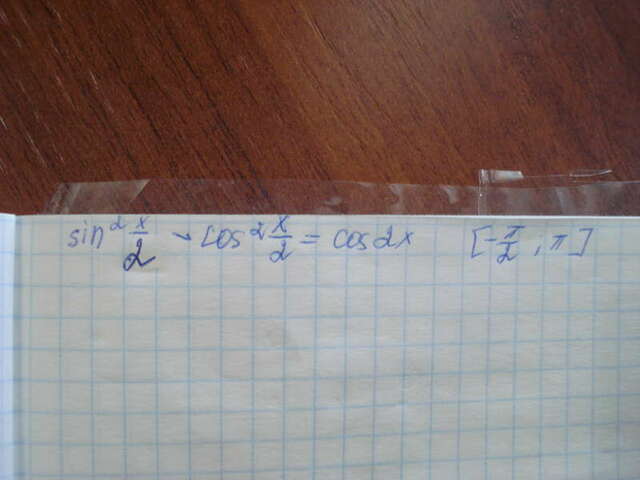 sin² x/2 - cos² x/2 = cos2x [-π/2, π]